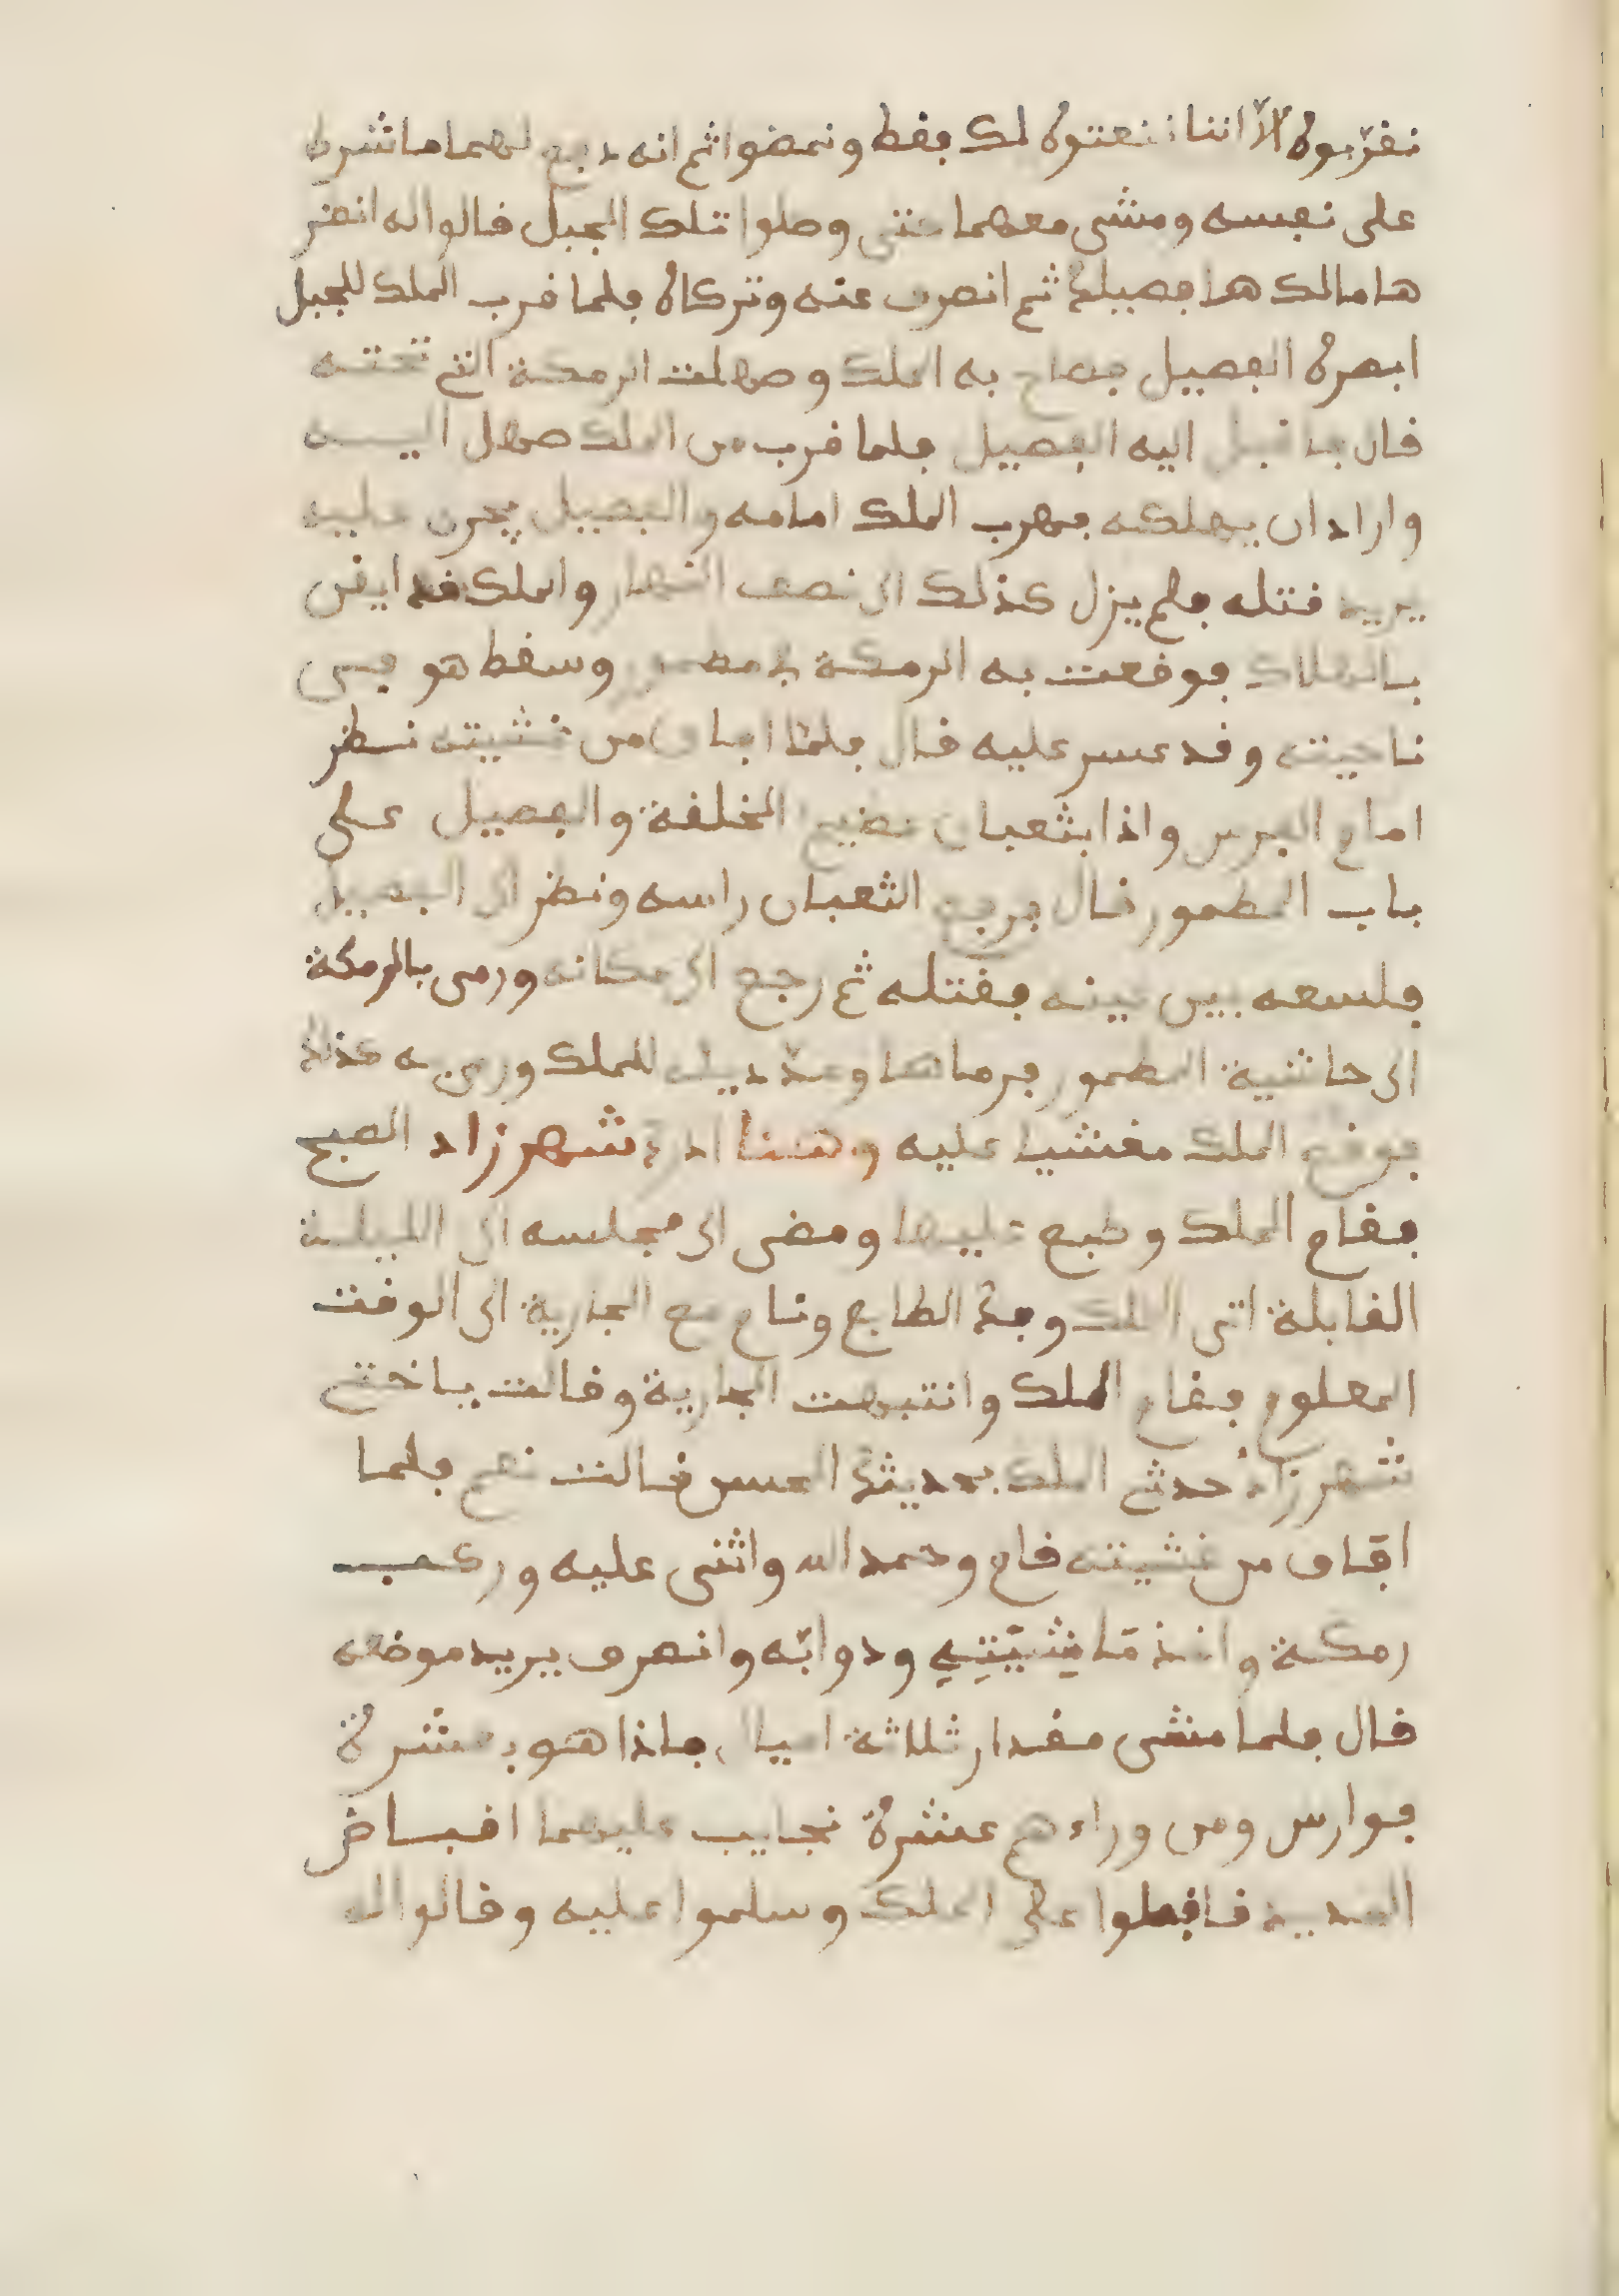 نقرّبوه الّا اننا ننعتوه لك فقط ونمضوا ثم انه دفع لهما ما شرط
على نفسه ومشى معهما حتى وصلوا تلك الجبل فالوا له انضر
ها مالك هدا فصيلك ثم انصرف عنه وتركاه فلما قرب الملك للجبل
ابصره الفصيل فصاح به الملك وصهلت الرمكة التي تحته
قال فاقبل اليه الفصيل فلما قرب من الملك صهل اليه
واراد ان يهلكه فهرب الملك امامه والفصيل يجرى عليه
يريد قتله فلم يزل كذلك الى نصف النهار والملك قد ايقن
بالهلاك فوقعت به الرمكة في مطمور وسقط هو في
ناحيته وقد عسر عليه قال فلما افاق من غشيته نظر
امام الفرس واذا بثعبان عظيم الخلقة والفصيل على
باب المطمور قال فرفع الثعبان راسه ونظر الى الفصيل
فلسعه بين عينه فقتله ثم رجع الى مكانه ورمى بالرمكة
الى حاشية المطمور فرماها ومدّ للملك ورمى به كذلك
فوقع الملك مغشيا عليه وهنا ادرك شهرزاد الصبح
فقام الملك وطبع عليها ومضى الى مجلسه الى الليلة
القابلة اتى الملك وفك الطابع ونام مع الجارية الى الوقت
المعلوم فقام الملك وانتبهت الجارية وقالت ياختي
شهرزاد حدثي الملك بحديثك الحسن قالت نعم فلما
افاق من غشيته قام وحمد الله واثنى عليه وركب
رمكة واخذ مَاشِيَتِهِ ودوابّه وانصرف يريد موضعه
قال فلما مشى مقدار ثلاثة اميال فاذا هو بعشرة
فوارس ومن وراءهم عشرة نجايب عليهما اقباض
الحديد فاقبلوا على الملك وسلموا عليه وقالوا له